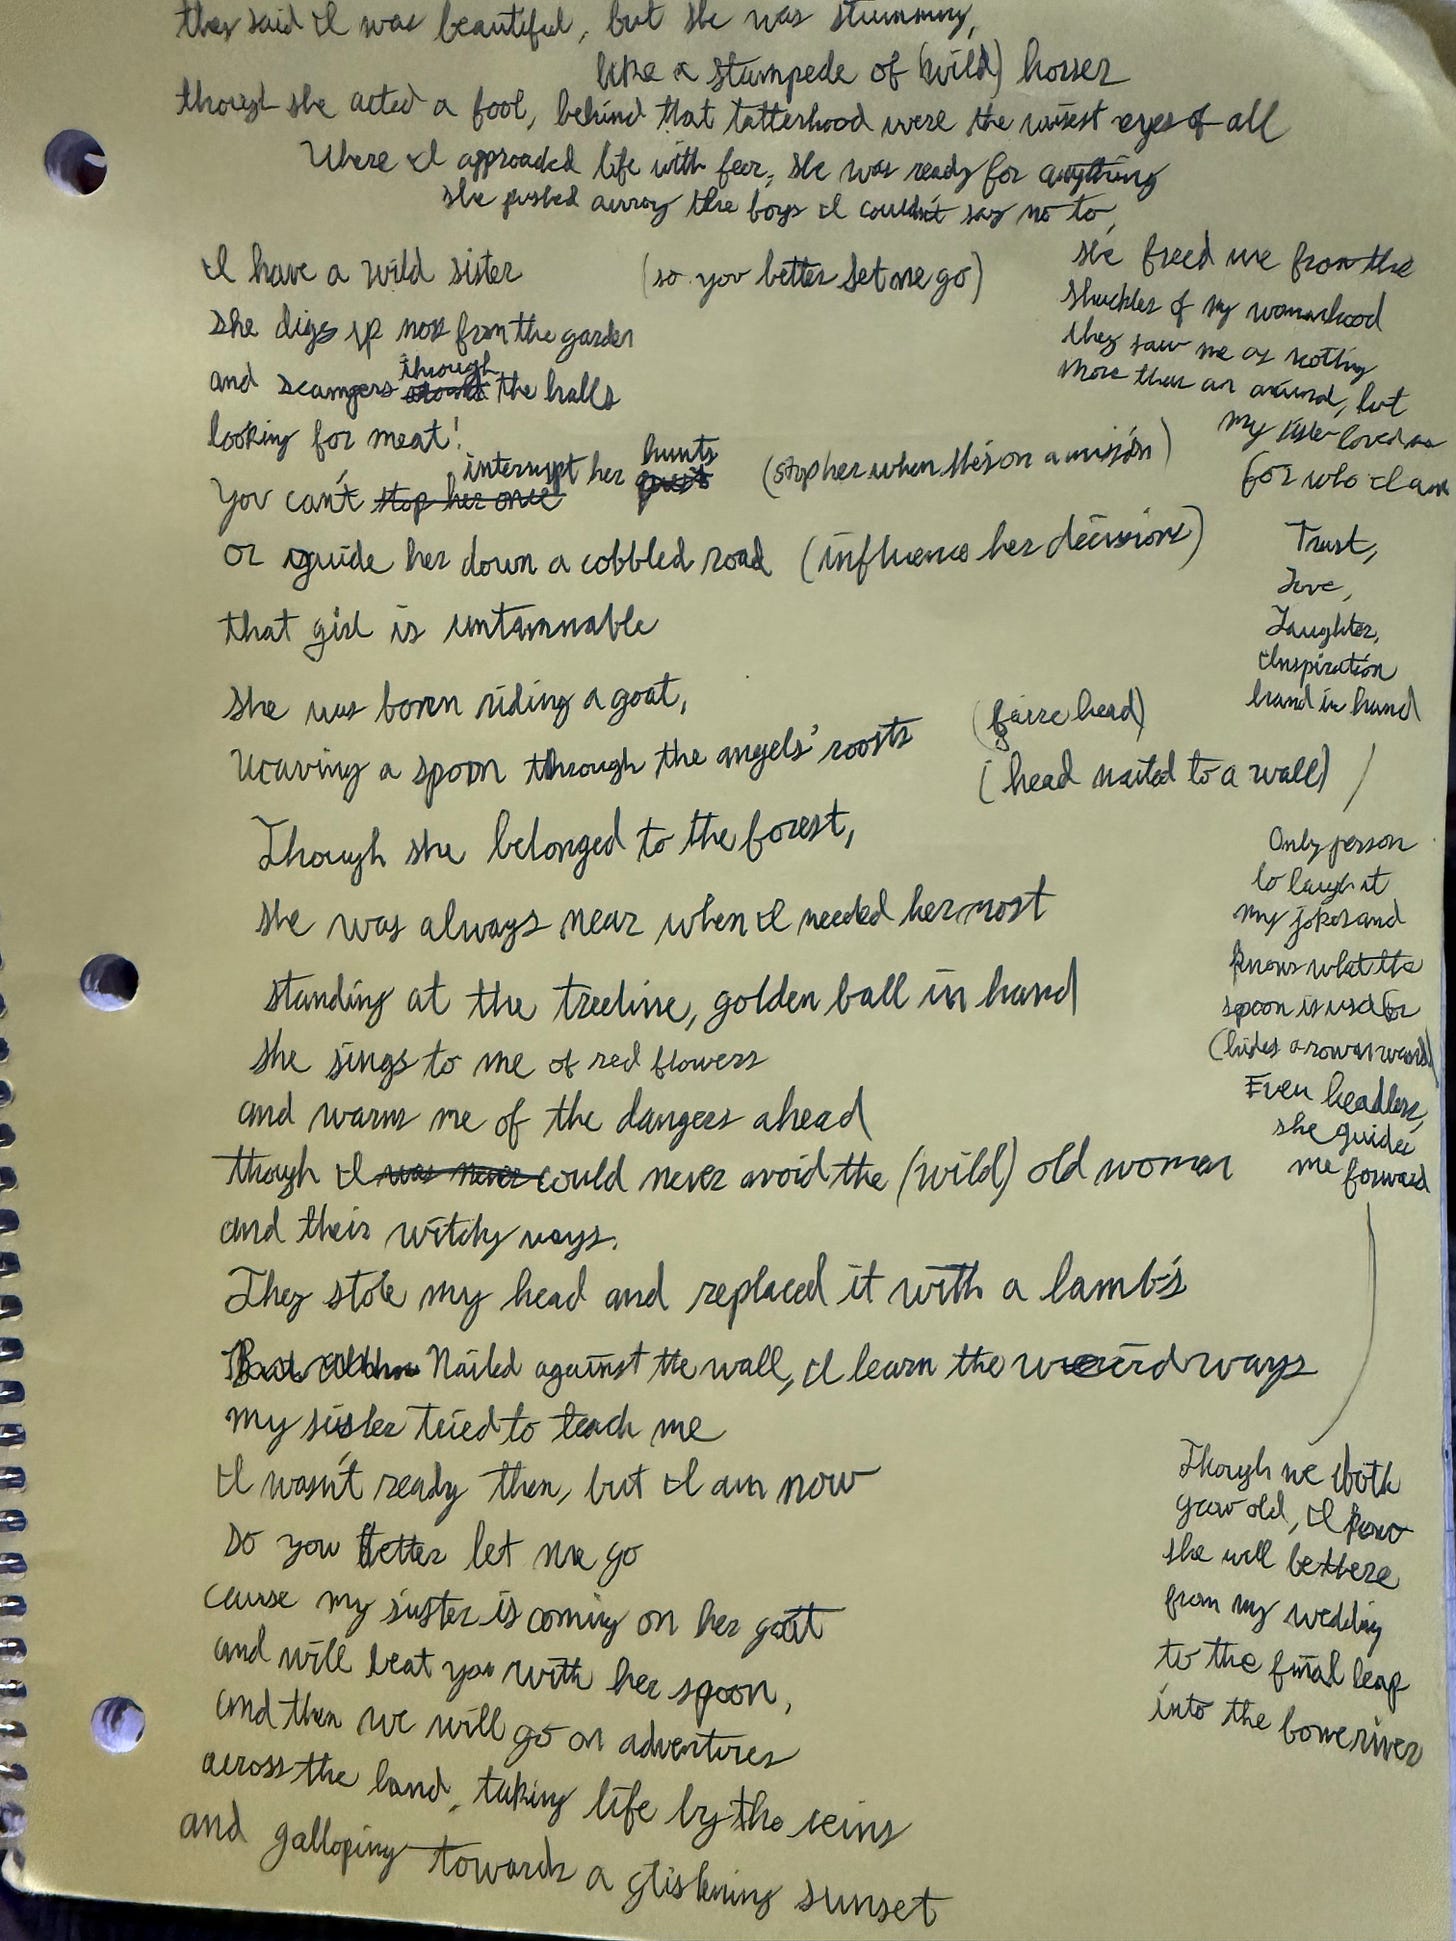 they said I was beautiful, but she was stunning,
like a stampede of (wild) horses
though she acted a fool, behind that tatterhood were the wisest eyes of all
Where I approached life with fear, she was ready for anything
she pushed away the boys I couldn't say no to,
I have a wild sister
(so you better let me go)
she digs up from the garden
and scampers through the halls
looking for meat!
You can't stop her once interrupt her hunts
(stop her when she's on a mission)
or guide her down a cobbled road (influence her decisions)
that girl is untamnable
she was born riding a goat,
(faire head)
Weaving a spoon through the angels' roosts
(head nailed to a wall)
Though she belonged to the forest,
she was always near when I needed her most
standing at the treeline, golden ball in hand
she sings to me of red flowers
and warns me of the dangers ahead
though I was never could never avoid the (wild) old women
and their witchy ways.
They stole my head and replaced it with a lamb's
Nailed against the wall, I learn the weird ways
my sister tried to teach me
I wasn't ready then, but I am now
So you better let me go
cause my sister is coming on her goat
and will beat you with her spoon,
and then we will go on adventures
across the land, taking life by the reins
and galloping towards a glistening sunset
she freed me from the
shackles of my womanhood
they saw me as nothing
more than an animal, but
my sister loved me
for who I am
Trust,
Love,
Laughter,
Inspiration
hand in hand
Only person
to laugh at
my jokes and
knows what the
spoon is used for
(hides a rowan wand)
Even headless,
she guides
me forward
Though we both
grow old, I know
she will be there
from my wedding
to the final leap
into the bone river